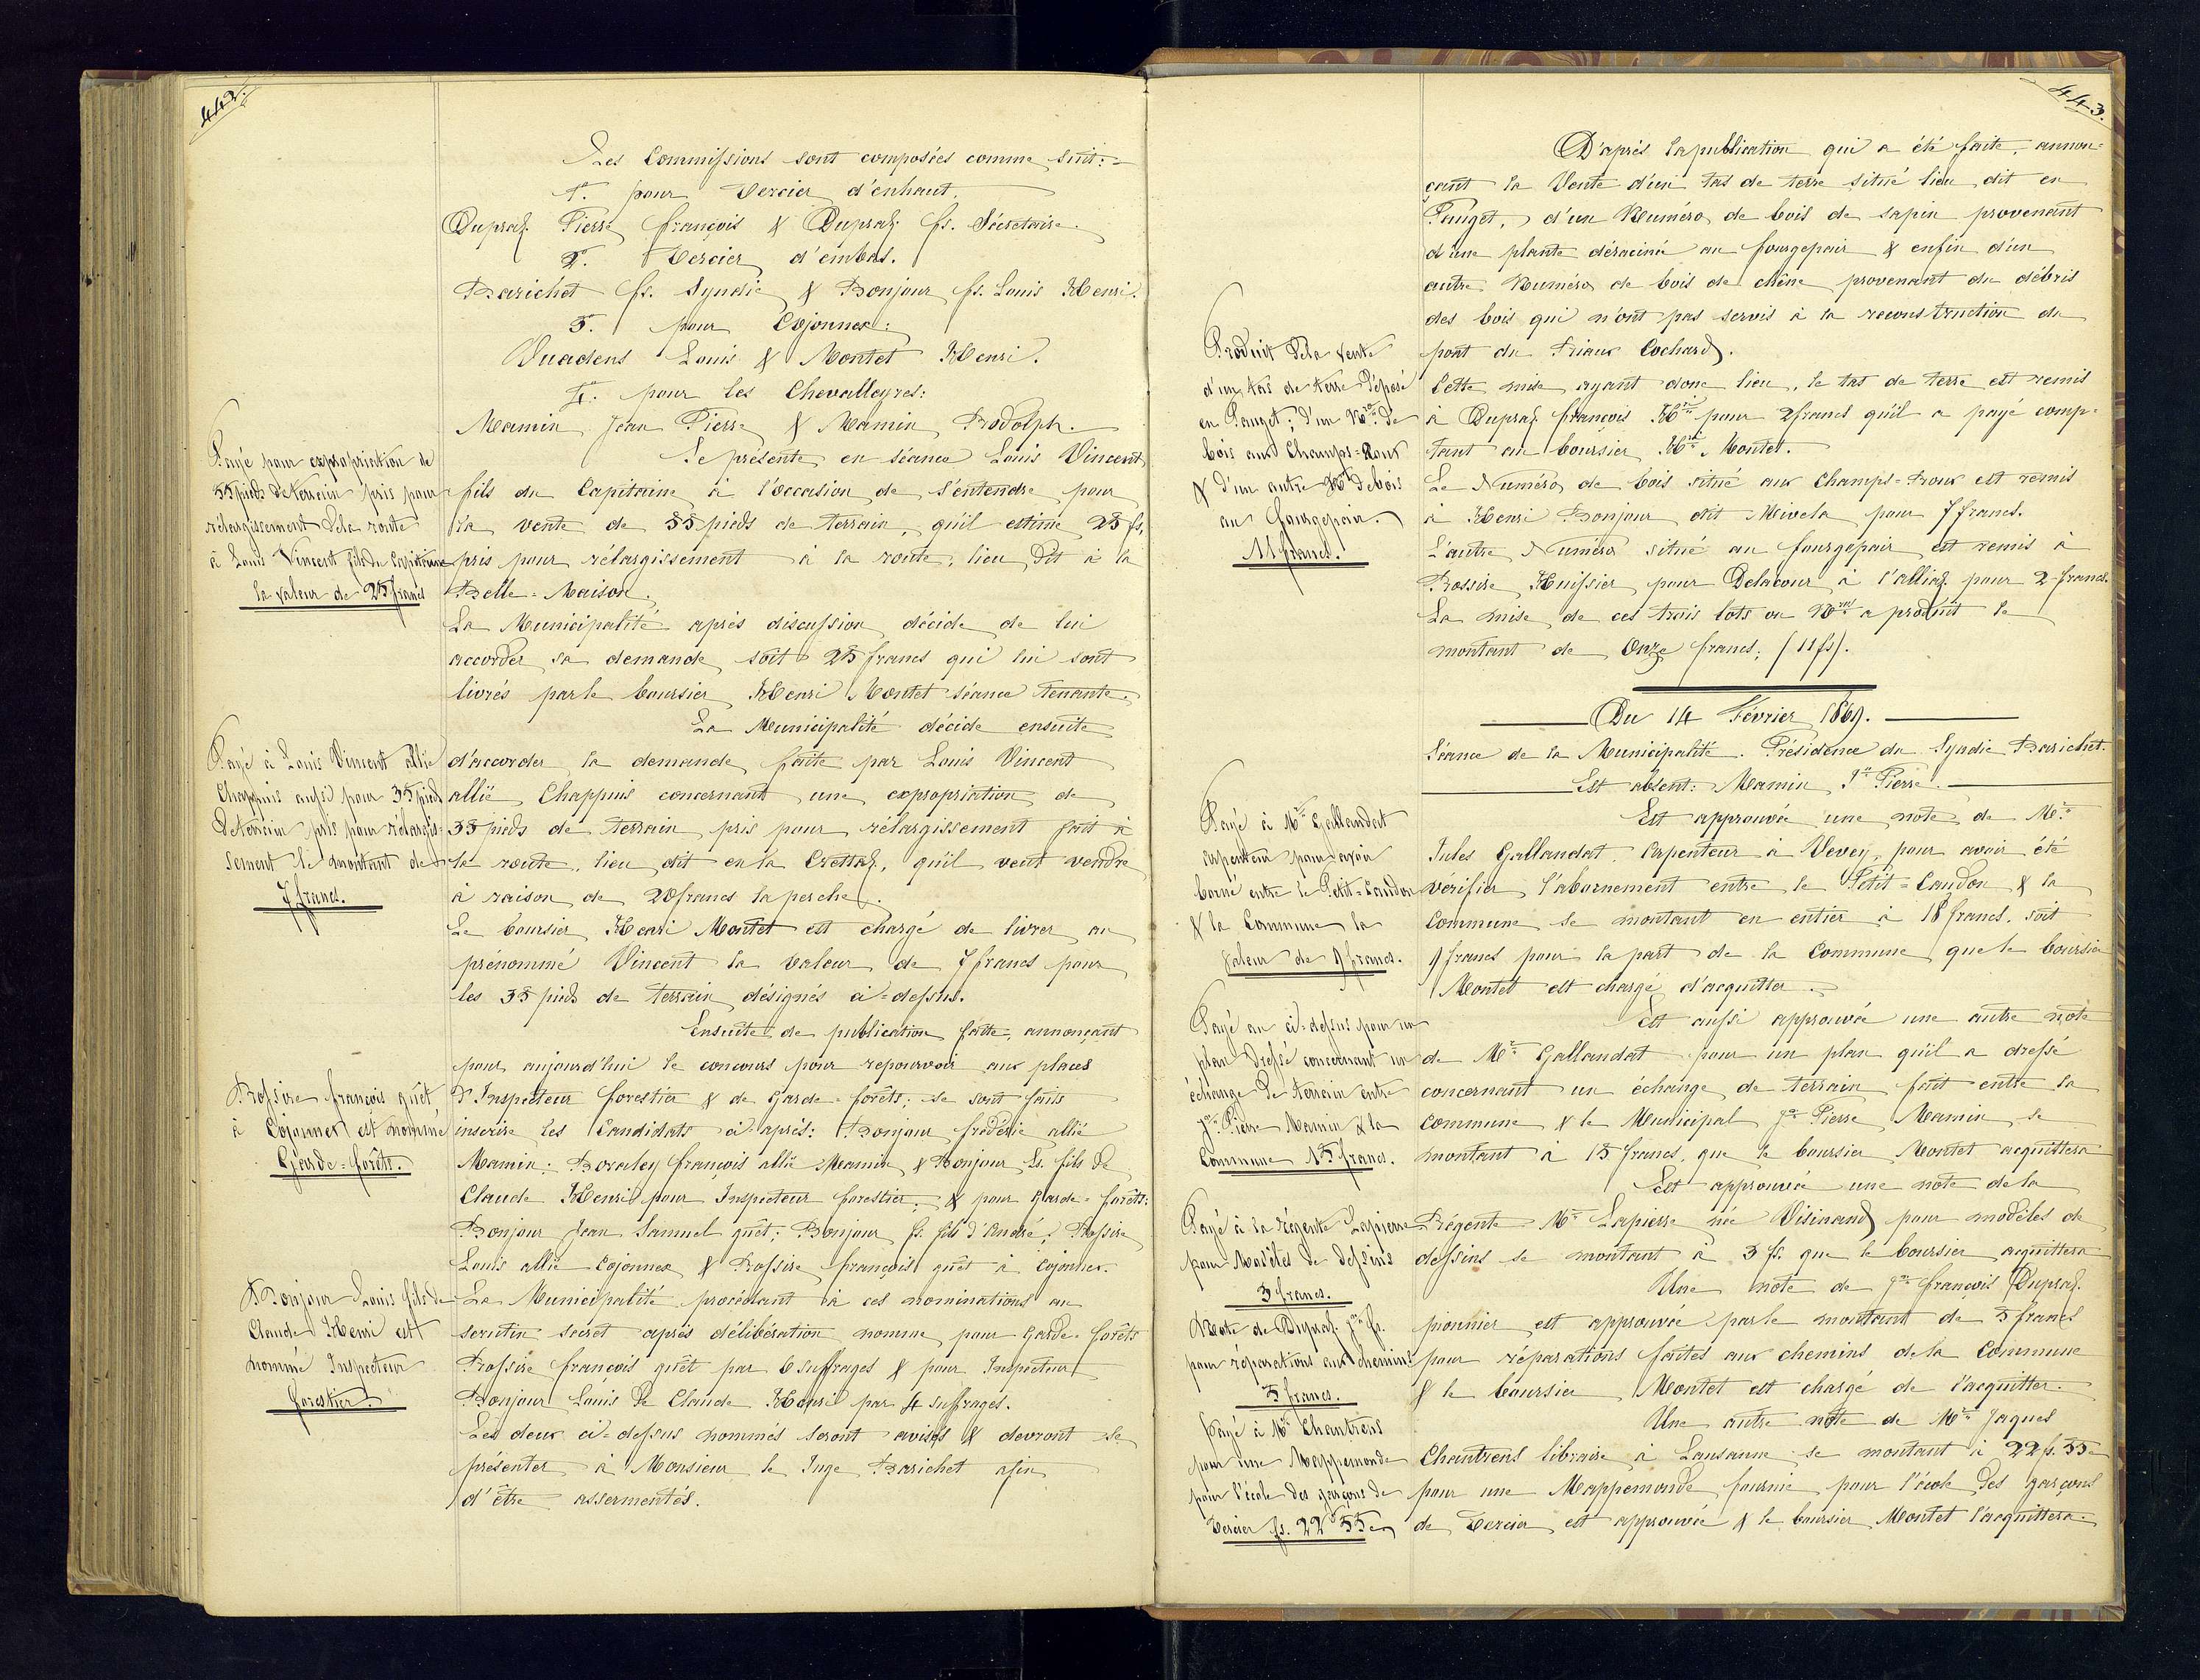 442.
Les Commissions sont composées comme suit:=
1°. pour Tercier d'enhaut.
Dupraz Pierre françois & Dupraz fs. Sécretaire.
2°. Tercier d'embas.
Barichet fs. Syndic & Bonjour fs. Louis Henri.
3°. pour Cojonnex:
Vuadens Louis & Montet Henri.
4°. pour les Chevalleyres:
Mamin Jean Pierre & Mamin Rodolph.
Payé pour expropriation de
55 pieds de terrein pris pour
rélargissement de la route
à Louis Vincent fils du Capitaine
la valeur de 25 francs
Se présente en séance Louis Vincent
fils du Capitaine à l'occasion de s'entendre pour
la vente de 55 pieds de terrain, qu'il estime 25 fs,
pris pour rélargissement à la route, lieu dit à la
Belle=Maison.
La Municipalité après discussion décide de lui
accorder sa demande soit 25 francs qui lui sont
livrés par le boursier Henri Montet séance tenante.
Payé à Louis Vincent allié
Chappuis aussi pour 35 pieds
de terrein pris pour rélargis=
sement le montant de
7 francs.
La Municipalité décide ensuite
d'accorder la demande faite par Louis Vincent
allié Chappuis concernant une expropriation de
35 pieds de terrain pris pour rélargissement fait à
la route, lieu dit en la Crettaz, qu'il veut vendre
à raison de 20 francs la perche.
Le boursier Henri Montet est chargé de livrer au
prénommé Vincent la valeur de 7 francs pour
les 35 pieds de terrain désignés ci=dessus.
Rossire françois guêt
à Cojonnex est nommé
Garde=forêts.
Ensuite de publication faite, annonçant
pour aujourd'hui le concours pour repourvoir aux places
d'Inspecteur forestier & de Garde=forêts; se sont faits
inscrire les Candidats ci-après: Bonjour frédéric allié
Mamin; Bovaley françois allié Mamin & Bonjour Ls. fils de
Claude Henri pour Inspecteur forestier; & pour Garde=forêts:
Bonjour Jean Samuel guêt; Bonjour fs. fils d'André; Rossire
Louis allié Cojonnex & Rossire françois guêt à Cojonnex.
Bonjour Louis fils de
Claude Henri est
nommé Inspecteur
forestier.
La Municipalité procédant à ces nominations au
scrutin sécret après délibération nomme pour Garde=forêts
Rossire françois guêt par 6 suffrages & pour Inspecteur
Bonjour Louis de Claude Henri par 4 suffrages.
Les deux ci=dessus nommés seront avisés & devront se
présenter à Monsieur le Juge Barichet afin
d'être assermentés.
443.
D'après la publication qui a été faite, annon=
çant la Vente d'un tas de terre situé lieu dit en
Pauget, d'un Numéro de bois de sapin provenant
d'une plante déraciné au fourgepair & enfin d'un
autre Numéro de bois de chêne provenant du débris
des bois qui n'ont pas servis à la reconstruction du
pont du Riaux Cochard.
Produit de la vente
d'un tas de terre déposé
en Pauget; d'un Nro. de
bois aux Champs=Roux
& d'un autre Nro. de bois
au fourgepair.
11 francs.
Cette mise ayant donc lieu, le tas de terre est remis
à Dupraz françois Hri. pour 2 francs qu'il a payé comp=
tant au boursier Hri. Montet.
Le Numéro de bois situé aux Champs=Roux est remis
à Henri Bonjour dit Mivela pour 7 francs.
L'autre Numéro situé au fourgepair est remis à
Rossire Huissier pour Delacour à l'alliaz pour 2 francs.
La mise de ces trois lots ou Nros. a produit le
montant de Onze francs; (11 fs).
Du 14 Février 1869.
Séance de la Municipalité. Présidence du Syndic Barichet.
Est absent: Mamin Jn. Pierre.
Payé à Mr. Gallandat
arpenteur pour avoir
borné entre le Petit=Caudon
& la Commune la
valeur de 9 francs.
Est approuvée une note de Mr.
Jules Gallandat, Arpenteur à Vevey, pour avoir été
vérifier l'abornement entre le Petit=Caudon & la
Commune se montant en entier à 18 francs, soit
9 francs pour la part de la Commune que le boursier
Montet est chargé d'acquitter.
Payé au ci=dessus pour un
plan dressé concernant un
échange de terrein entre
Jn. Pierre Mamin & la
Commune 15 francs.
Est aussi approuvée une autre note
de Mr. Gallandat pour un plan qu'il a dressé
concernant un échange de terrain fait entre la
Commune & le Municipal Jn. Pierre Mamin se
montant à 15 francs, que le boursier Montet acquittera
Payé à la régente Lapierre
pour Modèles de dessins
3 francs.
Est approuvée une note de la
Régente Me. Lapierre née Visinand pour modèles de
dessins se montant à 3 fs. que le boursier acquittera
Note de Dupraz Jn. fs.
pour réparations aux chemins
5 francs.
Une note de Jn. françois Dupraz
pionnier est approuvée par le montant de 5 francs
pour réparations faites aux chemins de la Commune
& le boursier Montet est chargé de l'acquitter.
Payé à Mr. Chantrens
pour une Mappemonde
pour l'école des garçons de
Tercier fs. 22 55 c
Une autre note de Mr. Jaques
Chantrens libraire à Lausanne se montant à 22 fs. 55 c
pour une Mappemonde fournie pour l'école des garçons
de Tercier est approuvée & le boursier Montet l'acquittera.